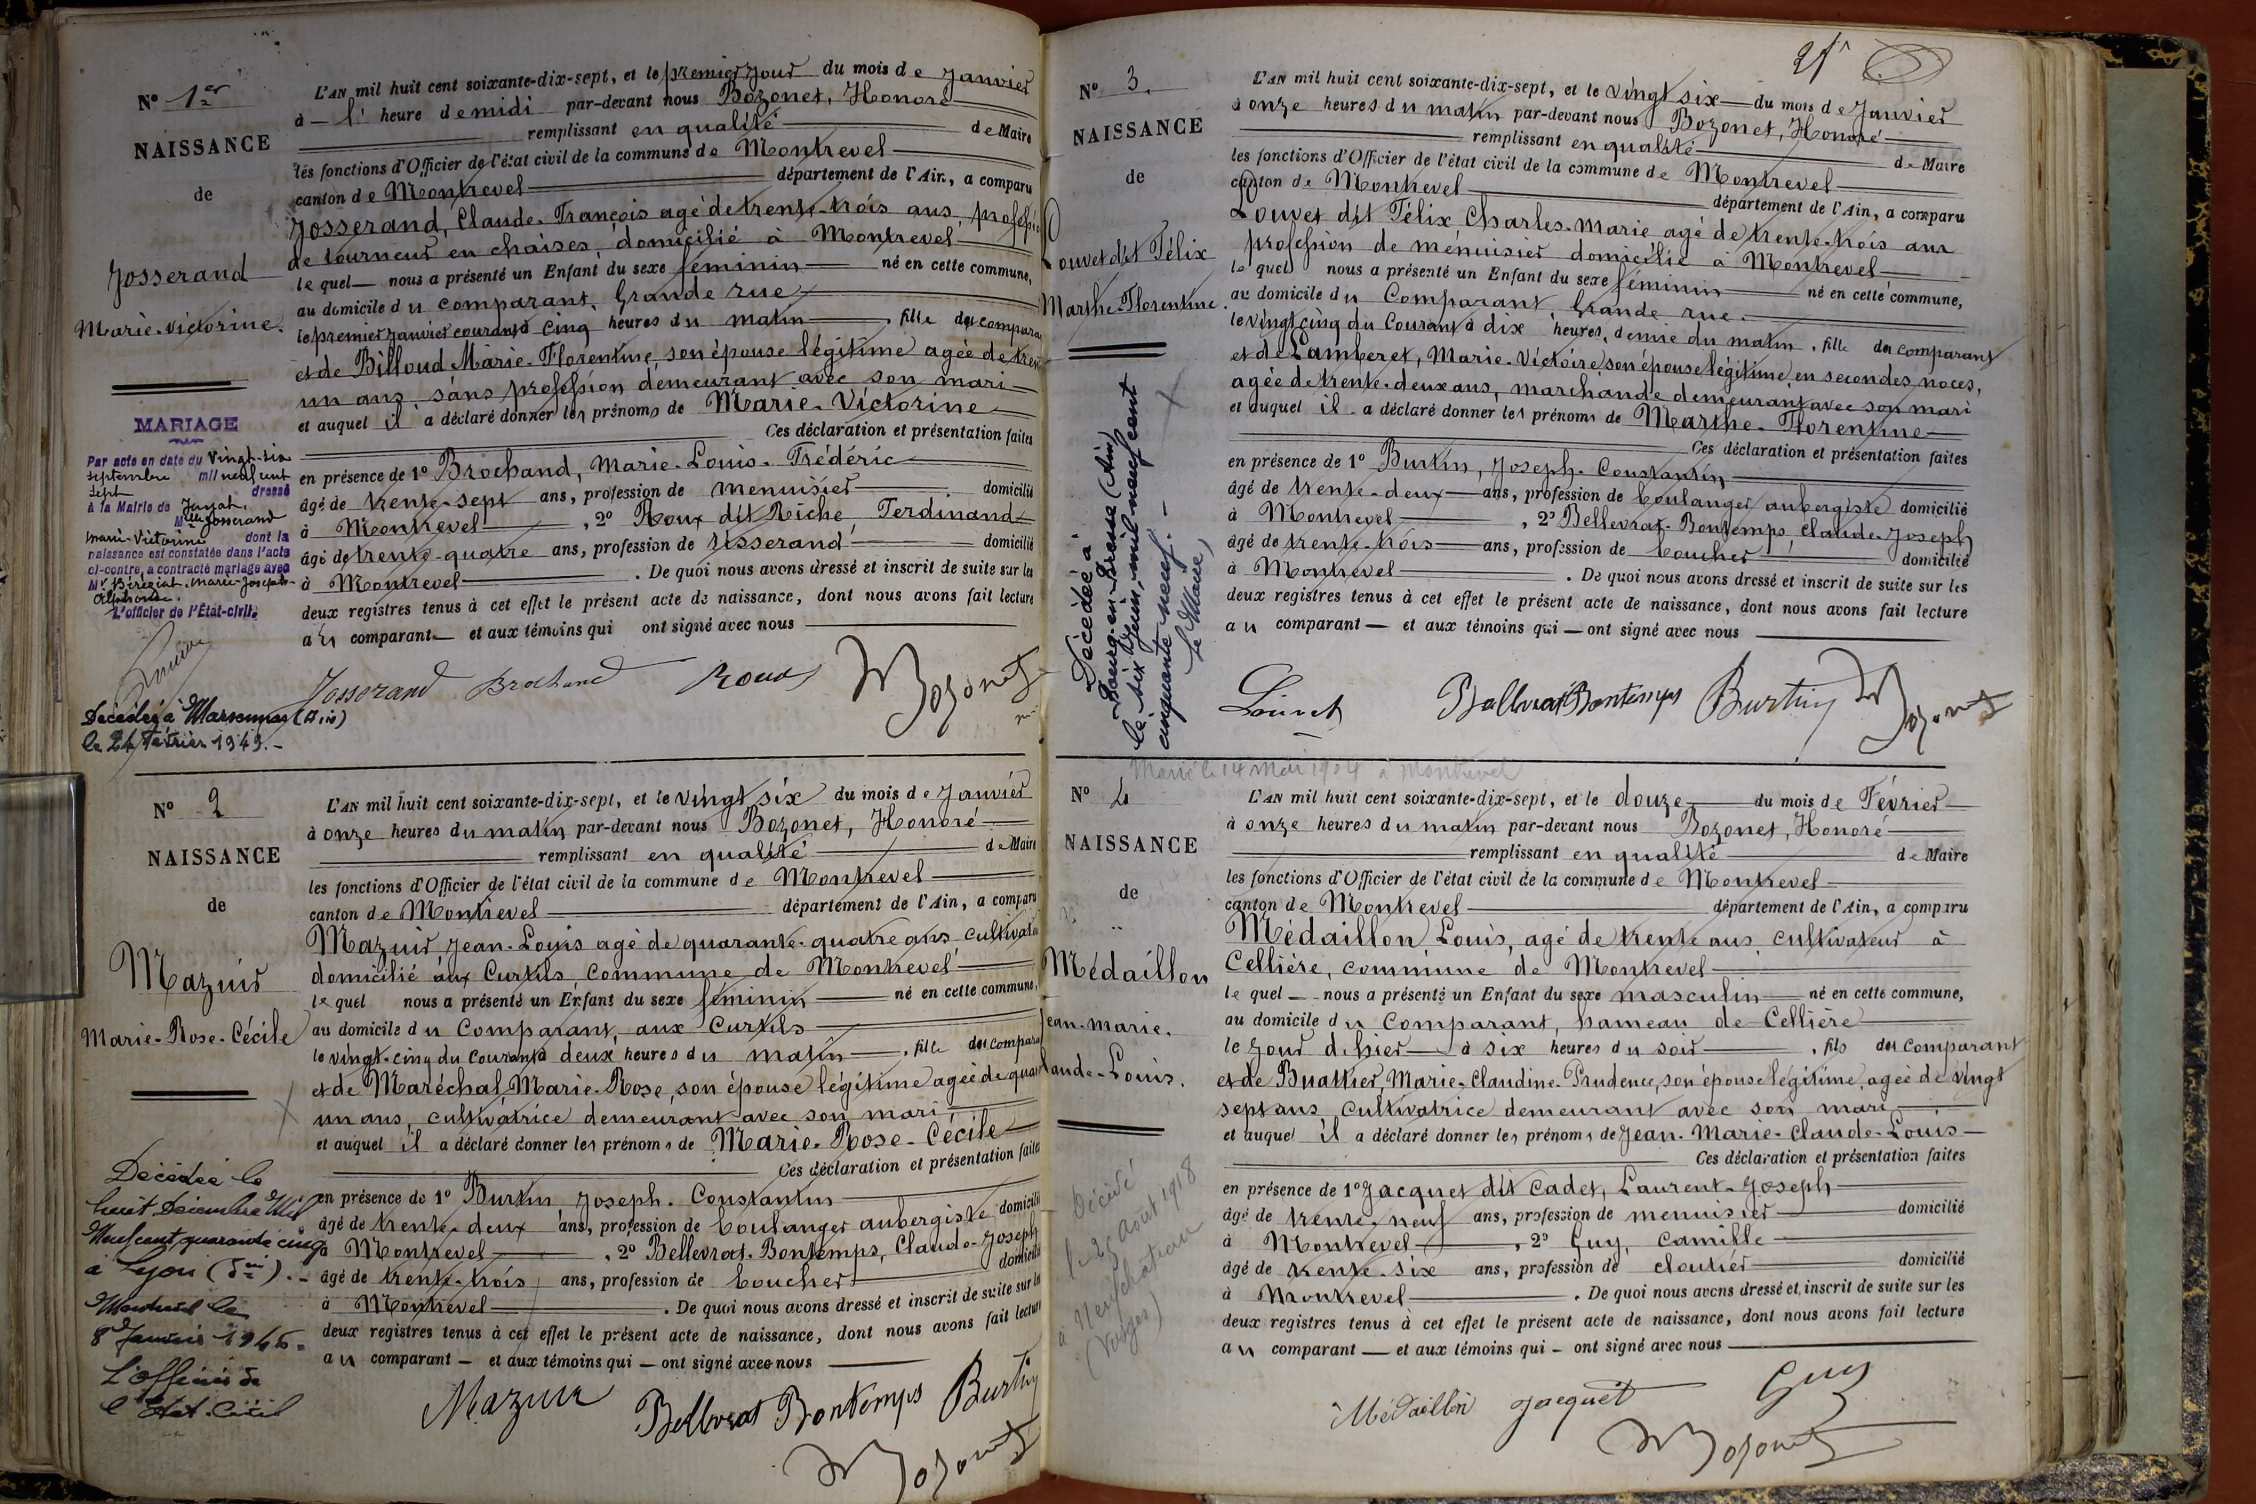 Nº 1er
NAISSANCE
de
Josserand
Marie-Victorine.
MARIAGE
Par acte en date du Vingt-six
septembre mil neuf cent
sept dressé
à la Mairie de Jayat,
Mlle Josserand
Marie-Victorine dont la
naissance est constatée dans l'acte
ci-contre, a contracté mariage avec
Mr Béréziat Marie-Joseph-
Alphonse.
L'officier de l'État-civil.
Décédée à Marsonnas (Ain)
le 24 février 1949.-
L'AN mil huit cent soixante-dix-sept, et le premier jour du mois de Janvier
à l' heure de midi par-devant nous Bozonet, Honoré
remplissant en qualité de Maire
les fonctions d'Officier de l'état civil de la commune de Montrevel
canton de Montrevel département de l'Ain, a comparu
Josserand, Claude-François agé de trente-trois ans, profession
de tourneur en chaises, domicilié à Montrevel
lequel nous a présenté un Enfant du sexe féminin né en cette commune,
au domicile du comparant, Grande rue
le premier Janvier courant à cinq heures du matin, fille du compara
et de Billoud Marie-Florentine, son épouse légitime agée de tren
un ans, sans profession demeurant avec son mari
et auquel il a déclaré donner les prénoms de Marie-Victorine
Ces déclaration et présentation faites
en présence de 1º Brochand, Marie-Louis-Frédéric
âgé de trente-sept ans, profession de menuisier domicilié
à Montrevel, 2º Roux dit Riche, Ferdinand
âgé de trente-quatre ans, profession de tisserand domicilié
à Montrevel. De quoi nous avons dressé et inscrit de suite sur les
deux registres tenus à cet effet le présent acte de naissance, dont nous avons fait lecture
au comparant et aux témoins qui ont signé avec nous
Josserand Brochand Roux Bozonet
Nº 2
NAISSANCE
de
Mazuir
Marie-Rose-Cécile
Décédée le
huit Décembre Mil
Neuf cent quarante cinq
à Lyon (5me).-
Montrevel le
8 Janvier 1946.
L'officier de
l'Etat-Civil
L'AN mil huit cent soixante-dix-sept, et le vingt six du mois de Janvier
à onze heures du matin par-devant nous Bozonet, Honoré
remplissant en qualité de Maire
les fonctions d'Officier de l'état civil de la commune de Montrevel
canton de Montrevel département de l'Ain, a comparu
Mazuir Jean-Louis agé de quarante-quatre ans cultivateu
domicilié aux Curtils commune de Montrevel
lequel nous a présenté un Enfant du sexe féminin né en cette commune,
au domicile du Comparant, aux Curtils
le vingt-cinq du Courant à deux heures du matin, fille du compara
et de Maréchal, Marie-Rose, son épouse légitime agée de quar
un ans, cultivatrice demeurant avec son mari
et auquel il a déclaré donner les prénoms de Marie-Rose-Cécile
Ces déclaration et présentation faites
en présence de 1º Burtin Joseph-Constantin
âgé de trente-deux ans, profession de boulanger aubergiste domicilié
à Montrevel, 2º Bellevrat-Bontemps, Claude-Joseph
âgé de trente-trois ans, profession de boucher domicilié
à Montrevel. De quoi nous avons dressé et inscrit de suite sur les
deux registres tenus à cet effet le présent acte de naissance, dont nous avons fait lecture
au comparant et aux témoins qui ont signé avec nous
Mazuir Bellevrat Bontemps Burtin
Bozonet
Nº 3.
NAISSANCE
de
Louvet dit Félix
Marthe-Florentine.
Décédée à
Bourg-en-Bresse (Ain)
le six Juin mil neuf cent
cinquante neuf.-
Le Maire,
L'AN mil huit cent soixante-dix-sept, et le vingt six du mois de Janvier
à onze heures du matin par-devant nous Bozonet, Honoré
remplissant en qualité de Maire
les fonctions d'Officier de l'état civil de la commune de Montrevel
canton de Montrevel département de l'Ain, a comparu
Louvet dit Félix Charles-Marie agé de trente-trois ans
profession de menuisier domicilié à Montrevel
lequel nous a présenté un Enfant du sexe féminin né en cette commune,
au domicile du Comparant Grande rue.
le vingt cinq du Courant à dix heures, demie du matin, fille du comparant
et de Lamberet, Marie-Victoire son épouse légitime en secondes noces,
agée de trente-deux ans, marchande demeurant avec son mari
et auquel il a déclaré donner les prénoms de Marthe-Florentine
Ces déclaration et présentation faites
en présence de 1º Burtin, Joseph-Constantin
âgé de trente-deux ans, profession de boulanger aubergiste domicilié
à Montrevel, 2º Bellevrat-Bontemps, Claude-Joseph
âgé de trente-trois ans, profession de boucher domicilié
à Montrevel. De quoi nous avons dressé et inscrit de suite sur les
deux registres tenus à cet effet le présent acte de naissance, dont nous avons fait lecture
au comparant et aux témoins qui ont signé avec nous
Louvet Bellevrat Bontemps Burtin Bozonet
Marié le 14 mai 1904 à Montrevel
Nº 4
NAISSANCE
de
Médaillon
Jean-Marie.
Claude-Louis.
Décédé
le 25 Août 1918
à Neufchateau
(Vosges)
L'AN mil huit cent soixante-dix-sept, et le douze du mois de Février
à onze heures du matin par-devant nous Bozonet, Honoré
remplissant en qualité de Maire
les fonctions d'Officier de l'état civil de la commune de Montrevel
canton de Montrevel département de l'Ain, a comparu
Médaillon Louis, agé de trente ans cultivateur à
Cellière, commune de Montrevel
lequel nous a présenté un Enfant du sexe masculin né en cette commune,
au domicile du Comparant, hameau de Cellière
le jour d'hier à six heures du soir, fils du comparant
et de Buattier, Marie-Claudine-Prudence, son épouse légitime, agée de vingt
sept ans cultivatrice demeurant avec son mari
et auquel il a déclaré donner les prénoms de Jean-Marie-Claude-Louis
Ces déclaration et présentation faites
en présence de 1º Jacquet dit Cadet, Laurent-Joseph
âgé de trente-neuf ans, profession de menuisier domicilié
à Montrevel, 2º Guy, Camille
âgé de trente-six ans, profession de cloutier domicilié
à Montrevel. De quoi nous avons dressé et inscrit de suite sur les
deux registres tenus à cet effet le présent acte de naissance, dont nous avons fait lecture
au comparant et aux témoins qui ont signé avec nous
Médaillon Jacquet Guy
Bozonet